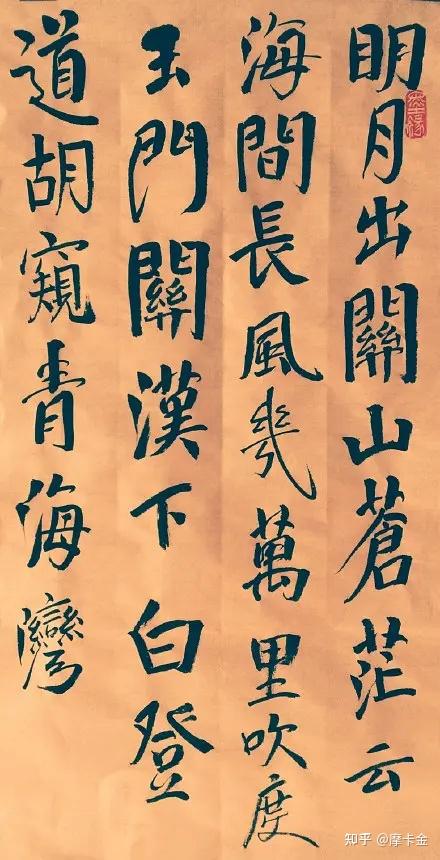 明月出關山蒼茫云
海間長風幾萬里吹度
玉門關漢下白登
道胡窺青海灣
知乎 @摩卡金